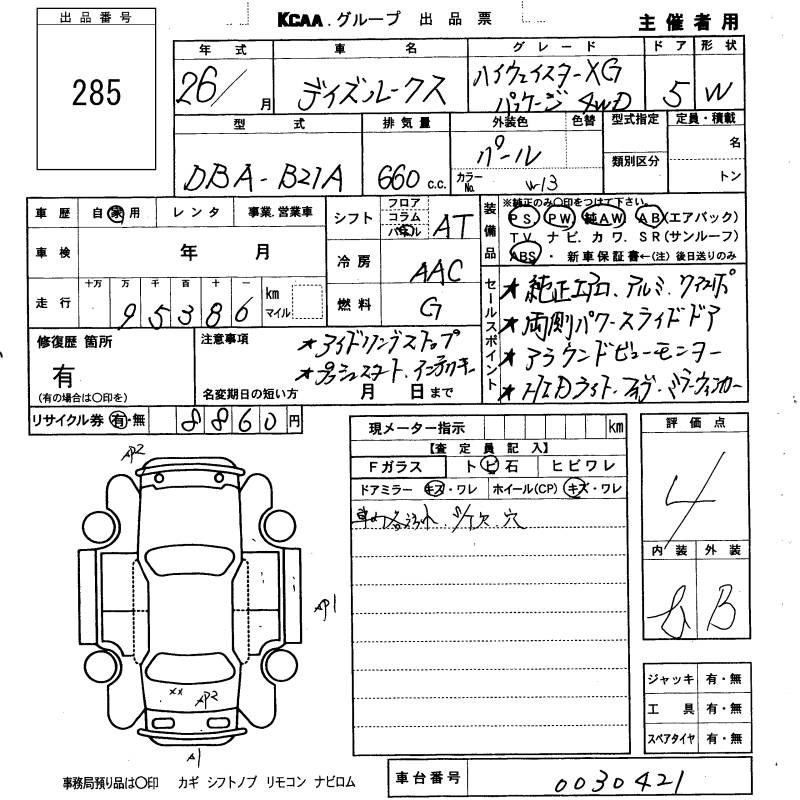 出品番号
285
KCAA.グループ 出品票
主催者用
年式 車名 グレード ドア 形状
26/ 月 デイズルークス ハイウェイスターXG パッケージ 4WD 5 W
型式 排気量 外装色 色替 型式指定 定員・積載
DBA-B21A 660 c.c. パール カラーNo. W13 類別区分 名 トン
車歴 自家用 レンタ 事業.営業車
車検 年 月
走行 十万 万 千 百 十 一 km マイル
95386
シフト フロア コラム AT
冷房 AAC
燃料 G
装備品 ※純正のみ○印をつけて下さい。
PS PW 純AW AB(エアバック)
TV ナビ.カワ.SR(サンルーフ)
ABS ・ 新車保証書←(注)後日送りのみ
セールスポイント
★純正エアロ、アルミ、
★両側パワースライドドア
★アラウンドビューモニター
★HIDライト
修復歴 箇所
有
(有の場合は○印を)
注意事項
★アイドリングストップ
★プッシュスタート
名変期日の短い方 月 日まで
リサイクル券 有・無 8860円
現メーター指示 km
【査定員記入】
Fガラス トビ石 ヒビワレ
ドアミラー キズ・ワレ ホイール(CP) キズ・ワレ
車内 穴
評価点
4
内装 外装
B
AP2
AP1
xx AP2
A1
ジャッキ 有・無
工具 有・無
スペアタイヤ 有・無
事務局預り品は○印 カギ シフトノブ リモコン ナビロム
車台番号 0030421